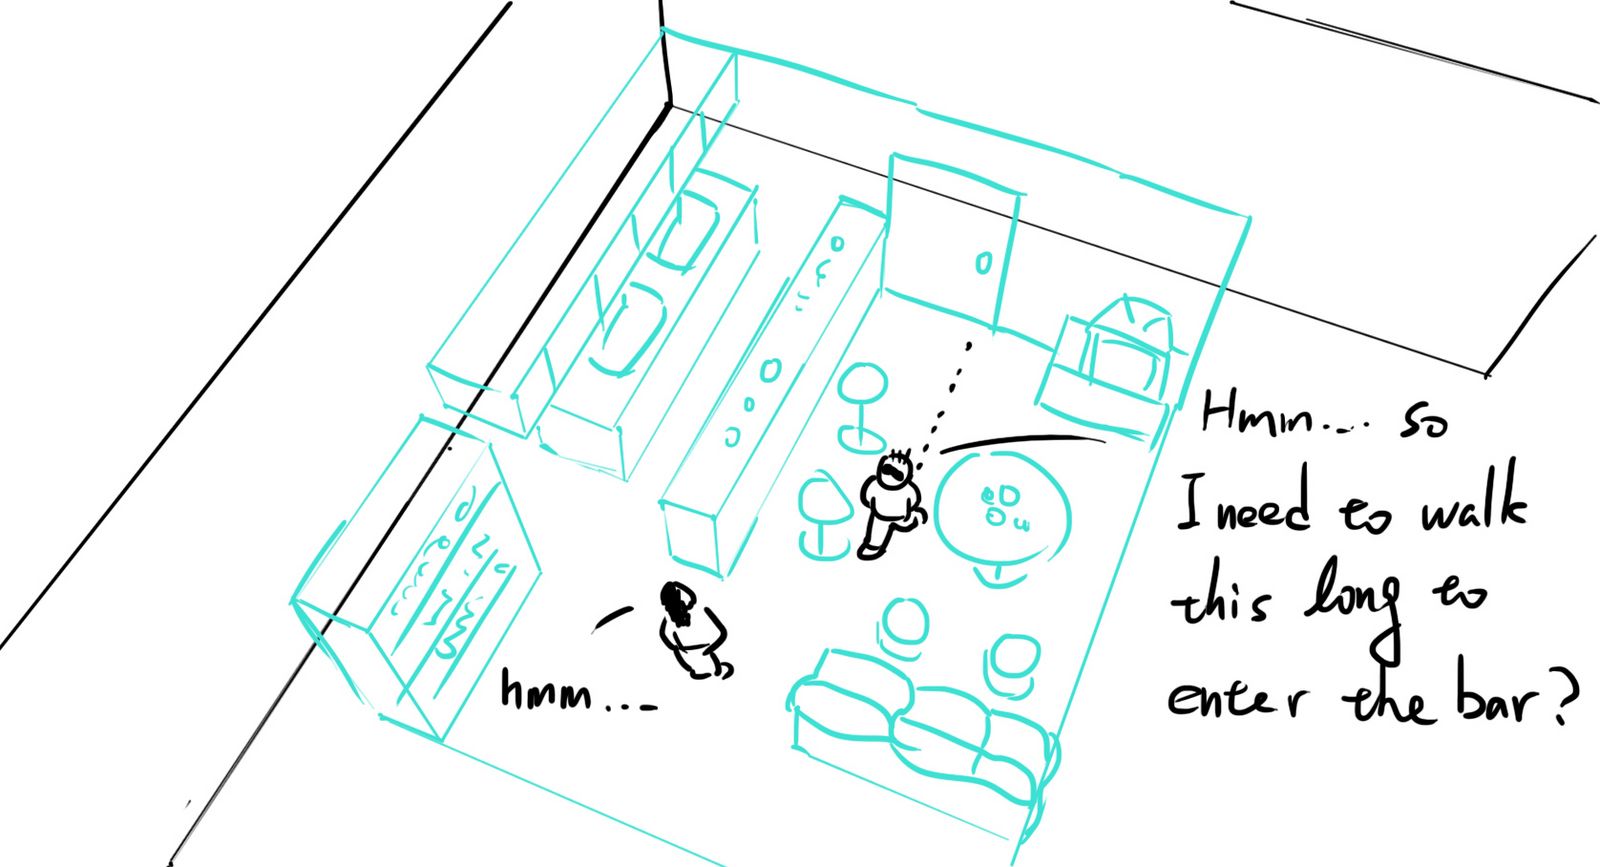 Hmm.... so
I need to walk
this long to
enter the bar?
hmm...